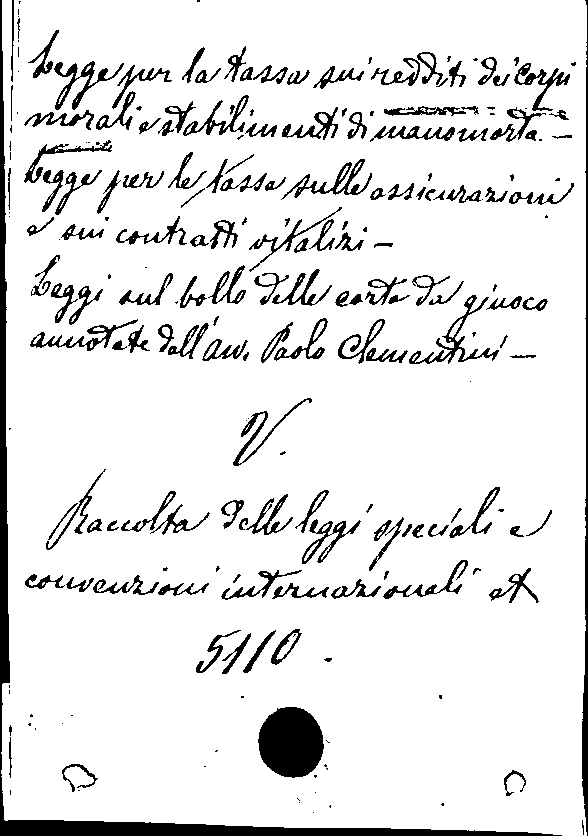 Legge per la tassa sui redditi dei corpi
morali e stabilimenti di manomorta. —
Legge per le tasse sulle assicurazioni
e sui contratti vitalizi —
Leggi sul bollo delle carte da giuoco
annotate dall'avv. Paolo Clementini —
V.
Raccolta delle leggi speciali e
convenzioni internazionali et
5110.